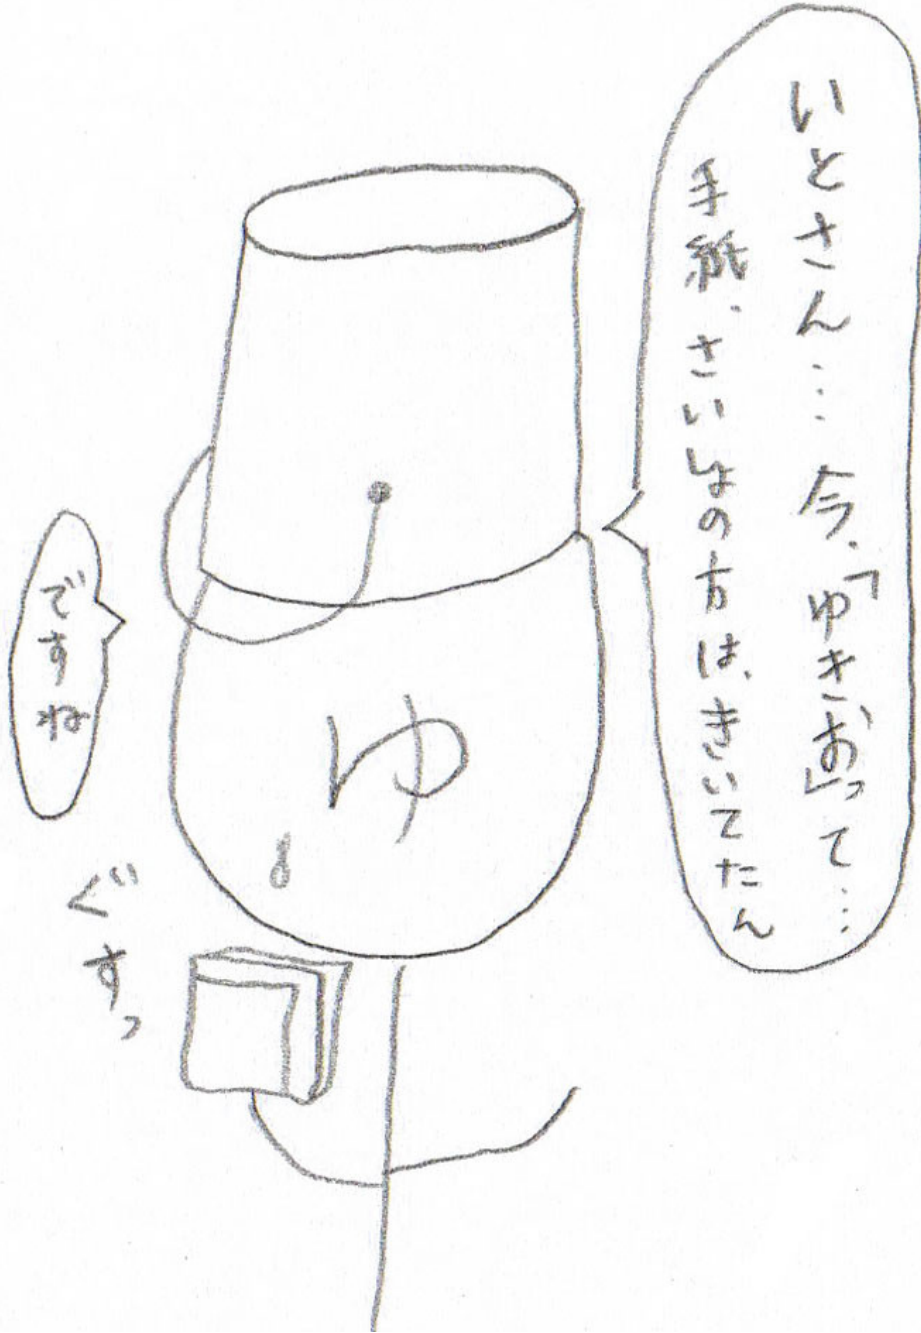 いとさん… 今、「ゆきお」って…
手紙、さいしょの方は、きいてたん
ですね
ゆ
ぐすっ